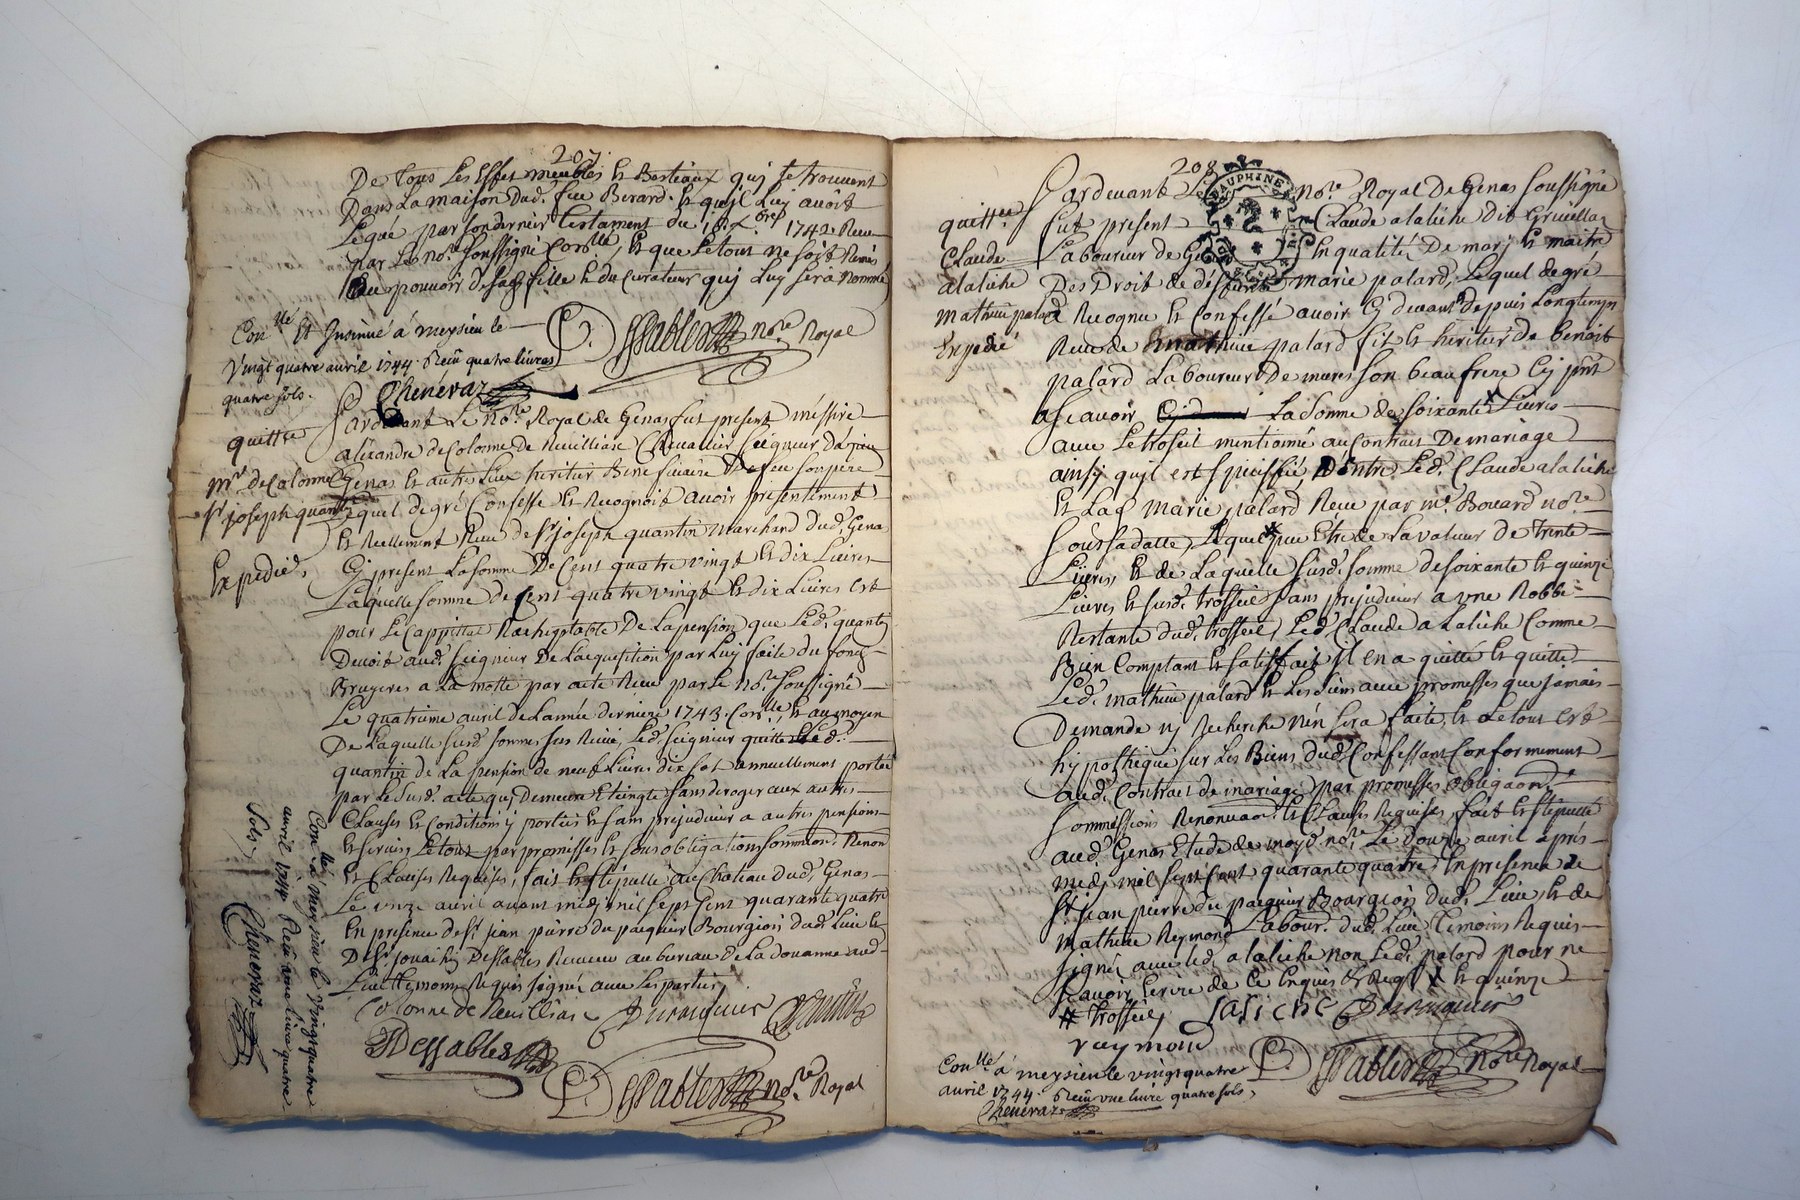 207.
De tous Les Effet meubles et Bestiaux quj se trouvent
Dans La maison dud. feu Berard. et qujl Luy avoit
Legué par son dernier testament du 18. xbre 1742. Receu
par Les nore soussigné Conlle, et que Le tout ne soit Remis
au pouvoir de sad fille et du curateur quj Luy sera Nommé
D. Dessables nore Royal
Conllé Et Insinué á meysieu le
Vingt quatre avril 1744. Receu quatre livres
quatre sols.
Chenevaz
quitte
mr de Colonne
sr joseph quantin
Expedié,
Pardevant Le Nore Royal de Genas fut present méssire
aléxandre de Colonne de neuilliase Chevallier Seigneur
Genas et autres Lieux heritier Beneficiaire De feu son père
Lequel de gré Confesse et Recognoit avoir presentement
et Reellement Receu de sr joseph quantin marchand dud. Genas
Cy present La somme De Cent quatre vingt et dix Livres
Laquelle somme de Cent quatre vingt et dix Livres est
pour Le Cappittal Racheptable De La pension que Led. quantin
Devoit aud. Seigneur De L'acquisition par Luy faite du fond
Bruyeres a La motte par acte Receu par Le nore soussigné
Le quatrieme avril de L'année derniere 1743. Conlle, et au moyen
De Laquelle susd. somme sus Receue, Led. seigneur quitte Led.
quantin de La pension de neuf Livres dix sol annuellement portée
par Le susd. acte quj Demeure Eteingte sans deroger aux autres
Clauses et Conditions y portées et sans prejudicier a autres pensions
et servis Le tout par promesses et sous obligations Renon
et Clauses Requises, fait et stipullé au Chateau dud. Genas
Le onze avril avant midj mil sept Cent quarante quatre
En presence de sr. jean pierre du pasquier Bourgeois dud. Lieu et
De sr. jouachin Dessables Receveur au bureau de La douanne aud.
Lieu temoins Requis signés avec Les parties
Colonne de Neuilliase Dupasquier Quantin
JDessables
D. Dessables nore Royal
Conllé á meysieu le vingt quatre
avril 1744 Receu une livre quatre
Sols,
Chenevaz
208
DAUPHINE
quittce
Claude
alaliche
mathieu palard
Expedié
Pardevant Le Nore Royal De Genas soussigné
fut present Claude alaliche dit Grivellaz
Laboureur de Genas En qualité De marj et maitre
Des Droit de marie palard, Lequel de gré
a Recognu et Confessé avoir Cy devant depuis Longtemps
Receu de mathieu palard fils et heritier de Benoit
palard Laboureur De mures son beau frere Cy pnt
a scavoir La somme de soixante Livres
avec Le troseil mentionné au Contrat De mariage
ainsy qujl est speciffié, D'entre Led. Claude alaliche
et Lad. marie palard Receu par me. Bouard nore
sous sa datte, Lequel peu Etre de La valeur de trente
Livres et de Laquelle susd. somme de soixante et quinze
Livres et susd. trosseil sans prejudicier a une Robbe
Restante dud. trosseil, Led. Claude alaliche Comme
Bien Comptant et satisfait Il en a quitté et quitte
Led. mathieu palard et Les siens avec promesses que jamais
Demande nj Recherche n'en sera faite, et Le tout est
hypothequé sur Les Biens dud. Confessant Conformement
aud. Contrat de mariage par promesses obligaons
sommissions Renonciaons et Clauses Requises, fait et stipullé
aud. Genas Etude de moyd. nore Le douze avril aprés
midj mil sept Cent quarante quatre En presence de
sr. jean pierre du pasquier Bourgeois dud. Lieu et de
mathieu Reymond Labour. dud. Lieu temoins Requis
signés avec led. alaliche non Led. palard pour ne
scavoir Ecrire de Ce Enquis et Requis X et quinze
# trosseil, laliche Dupasquier
raymond
D. Dessables Nore Royal
Conllé á meysieu le vingt quatre
avril 1744. Receu une livre quatre sols,
Chenevaz